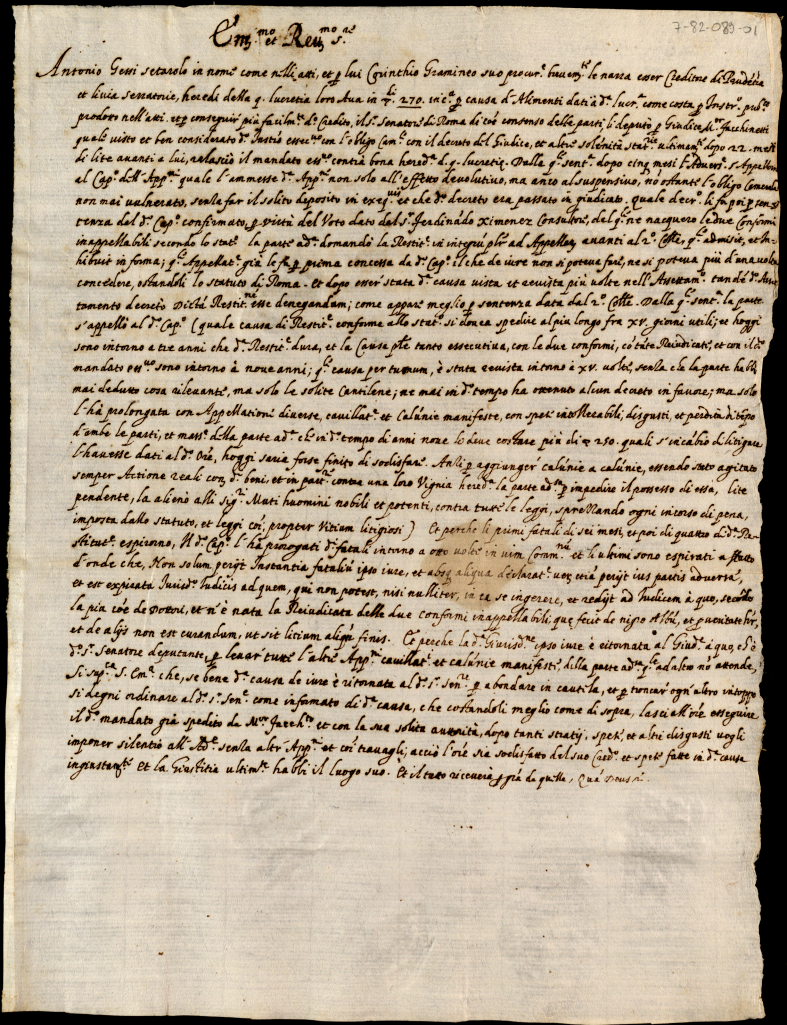 7-82-089-01
Em.mo et Reu.mo s.re
Antonio Gessi setarolo in nome come nelli atti, et p lui Corinthio Gramineo suo procur.e breuem.te le narra esser Creditre di Prudétia
et liuia serratorie, heredi della q. lucretia loro Aua in 270. in c.a p causa d'Alimenti dati à d.a lucr.a come costa p Instr.o pub.co
prodotto nell'atti. et p conseguir più facilm.te d.o Credito, il s.r Senatore di Roma di coé consenso delle parti, li deputò p Giudice M.r Jacchinetti
quali uisto et ben considerato d.o Instr.o con l'obligo Cam.le con il decreto del Giudice, et altre solénità ultimam.te dopo 22. mesi
di lite auanti a lui, rilassiò il mandato ess.uo contra bona hered. d. q. lucretie. Dalla q.l sent.a dopo cinq mesi l'Auuers.a s'Appellò
al Cap.o d.M. App.ne quale l'ammesse d.a App.ne non solo all'effetto deuolutiuo, ma anco al suspensiuo, nó ostante l'obligo Camerale
non mai uulnerato, senza far il solito deposito in et che d.o decreto era passato in giudicato. quale decr.o li fu poi p sen
tenza del d.o Cap.o confirmato, p uirtù del Voto dato dal s.r Ferdinádo Ximenez Consultre, dal q.le ne nacquero le due Conformi
inappellabili secondo lo stat.o la parte ad.a domandò la Restit.ne in integrú auanti al 2.o Colle, q.le admisit, et In-
hibuit in forma; q.l Appellat.e già le fu p prima concessa da d.o Cap.o il che de iure non si poteua fare, ne si poteua più d'una uolta
concedere, ostandoli lo statuto di Roma. et dopo esser stata d.a causa uista et reuista più uolte nell'Assettam.to tandé d.o Asset
tamento decretò Dictá Restit.ne esse denegandam; come appare meglio p sentenza data dal 2.o Colle. Dalla q.l sent.a la parte
s'appellò al d.o Cap.o (quale causa di Restit.ne conforme allo stat.o si doueua spedire al più longo fra XV. giorni utili; et hoggi
sono intorno a tre anni che d.a Restit.ne dura, et la Causa tanto essecutiua, con le due conformi, có tate Reiudicate, et con il d.o
mandato ess.uo sono intorno à noue anni; q.l causa per turnum, è stata reuista intorno à XV. uolte, senza che la parte habbi
mai dedutto cosa rileuante, ma solo le solite Cantilene; ne mai in d.o tempo ha ottenuto alcun decreto in fauore; ma solo
l'há prolongata con Appellationi diuerse, cauillat.ni et Calúnie manifeste, con spese intollerabili, disgusti, et perdita di tépo
d'ambe le parti, et mass.e della parte ad.a ch'in d.o tempo di anni noue le deue costare più di 250. quali s'in cábio di litigare
l'hauesse dati al d.o Ore, hoggi saria forse finito di sodisfare. Anzi p aggiunger calúnie a calúnie, essendo stato agitato
semper Actione reali con d.i beni, et in part.re contra una loro Vignia hered.a la parte ad.a p impedire il possesso di essa, lite
pendente, la alienò alli sig.ri Muti huomini nobili et potenti, contra tutte le leggi, sprezzando ogni incorso di pena,
imposta dallo statuto, et leggi coi, propter Vitium litigiosi) Et perche li primi fatali di sei mesi, et poi di quattro di d.a Re-
stitut.ne espirorno, Il d.o Cap.o l'há prorogati d.i fatali intorno a otto uolte in uim Comm.nis et l'ultimi sono espirati a fatto
d'onde che, Non solum perijt Instantia fataliú ipso iure, et absq aliqua déclarat.e ues etiá perijt ius partis aduersæ,
et est expirata Iurisd.o Iudicis ad quem, qui non potest, nisi nulliter, in ea se ingerere, et redijt ad Iudicem à quo, secódo
la più coé de Dottori, et n'è nata la Reiudicata delle due conformi inappellabili que fecit de nigro Albú, et
et de alijs non est curandum, ut sit litium aliquis finis. Et perche la d.a Giurisd.ne ipso iure è ritornata al Giud.e à quo, ch'è
d.o s.r Senatore deputante, p leuar tutte l'altre App.ni cauillat.ni et calúnie manifeste, della parte ad.a q.le ad altro nó attende,
Si sup.ca S. Em.a che, se bene d.a causa de iure è ritornata al d.o s.r Sen.re p abondare in cautela, et p troncar ogn'altro intoppo
si degni ordinare al d.o s.r Sen.re come informato di d.a causa, che costandoli meglio come di sopra, lasci all'Ore esseguire
il d.o mandato già spedito da M.r Jacch.tti et con la sua solita auttorità, dopo tanti stratij, spese, et altri disgusti uogli
imponer silentio all'Ad.a senza altre App.ni et coi trauagli, acciò l'Ore sia sodisfatto del suo Cred.o et spese fatte in d.a causa
ingiustam.te Et la Giustitia ultim.te habbi il luogo suo. Et il tutto riceuerà p gra da quella, Quá Deus